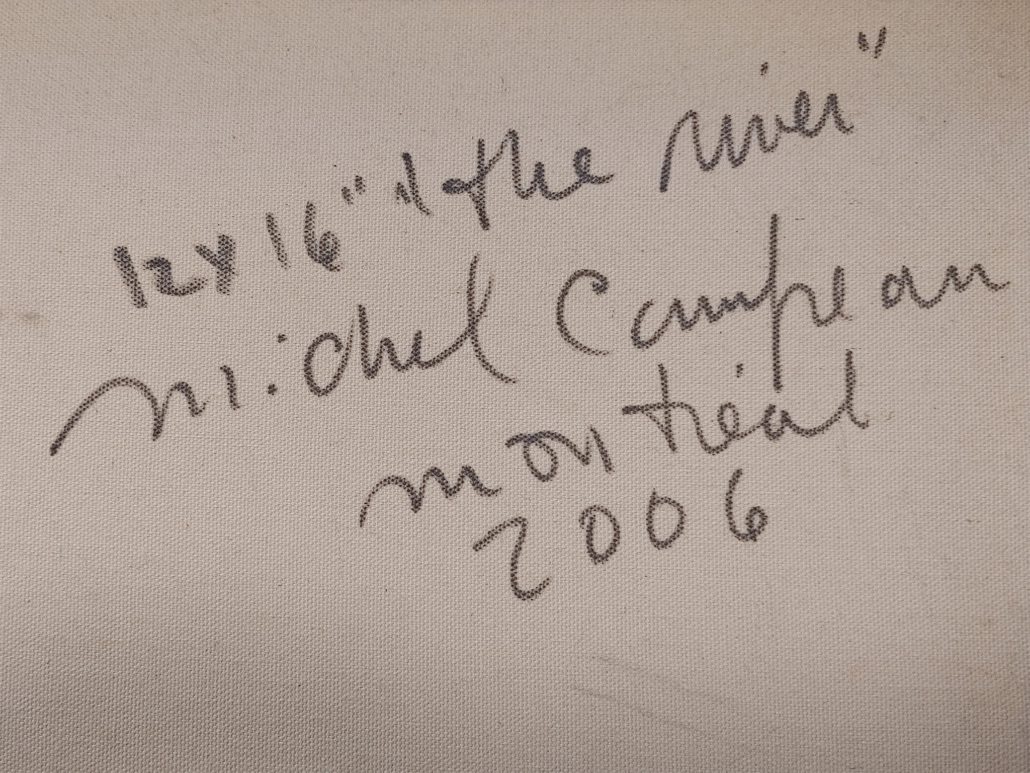 12x16" "the river"
michel Campeau
montréal
2006